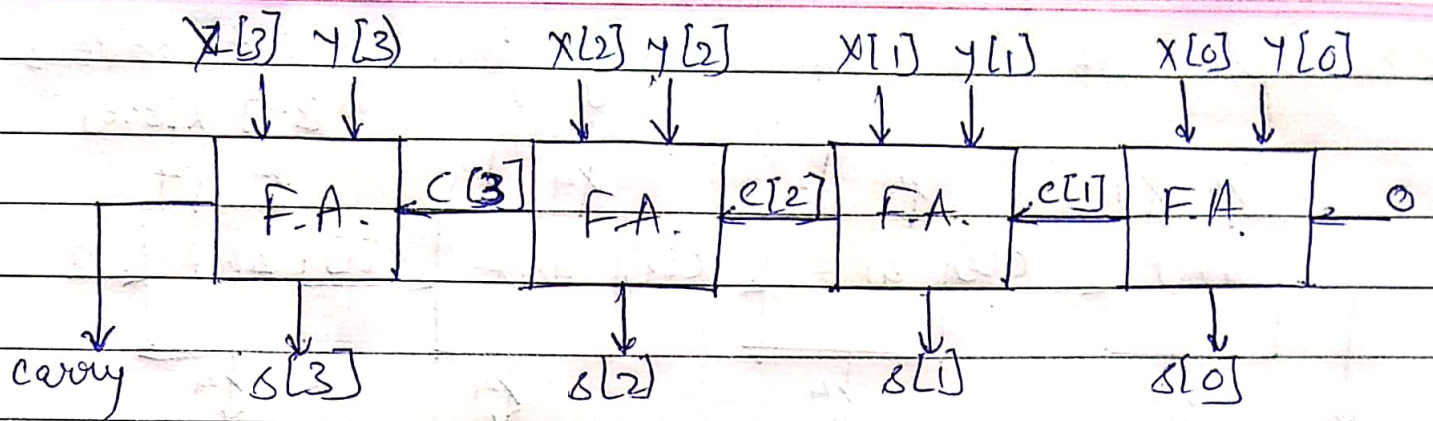 X[3] Y[3] X[2] Y[2] X[1] Y[1] X[0] Y[0]
F.A. C[3] F.A. C[2] F.A. C[1] F.A. 0
carry S[3] S[2] S[1] S[0]